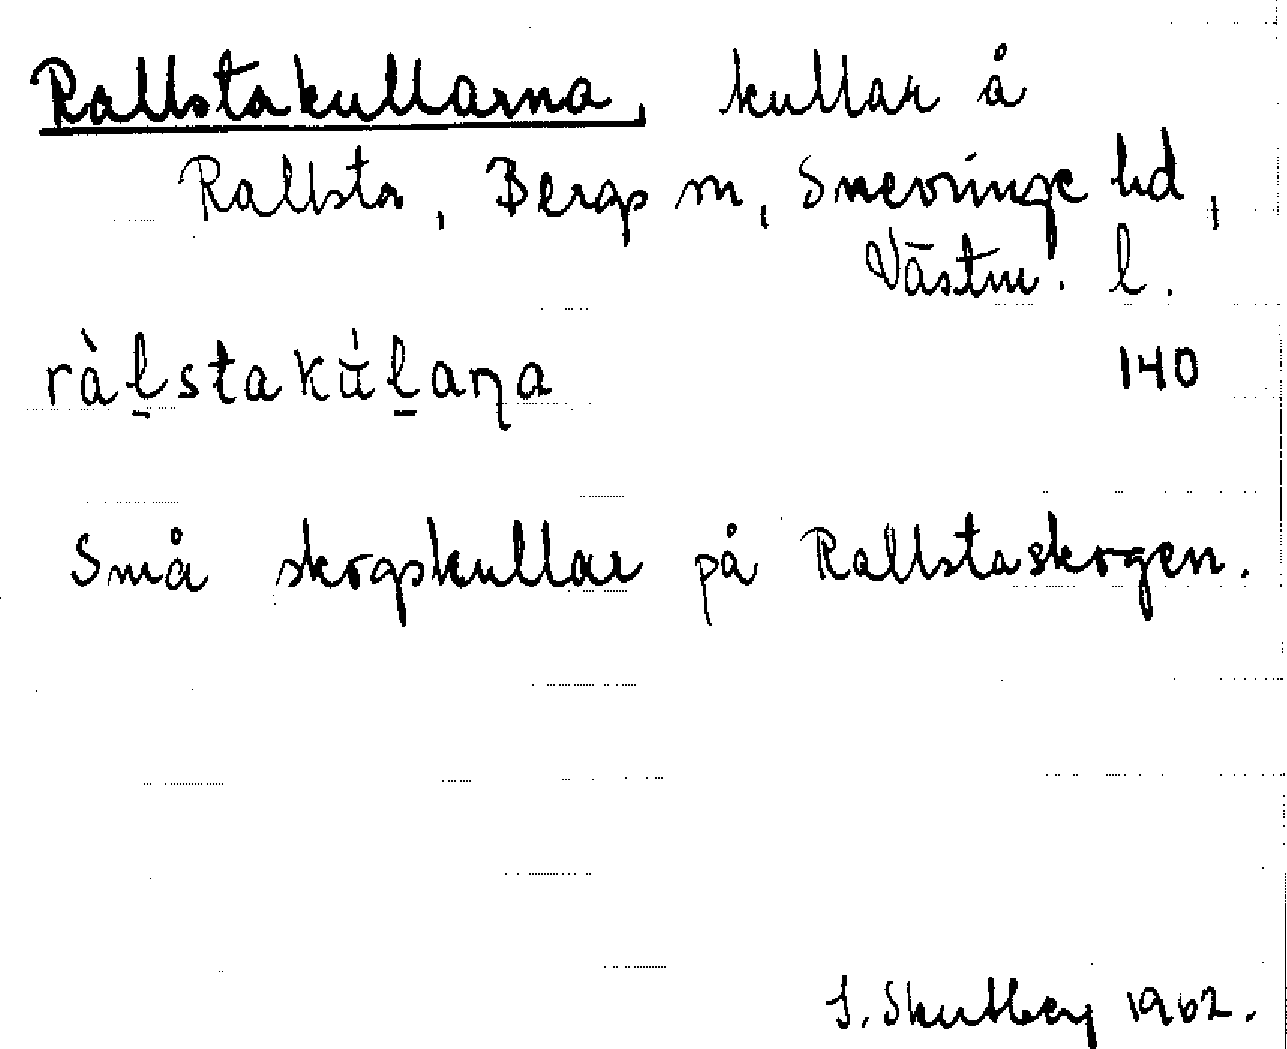 Rallstakullarna, kullar å
Rallsta, Bergs sn, Snevringe hd,
Västm. l.
ràl̲stakùl̲aꞃa 140
Små skogskullar på Rallstaskogen.
S. 1962.